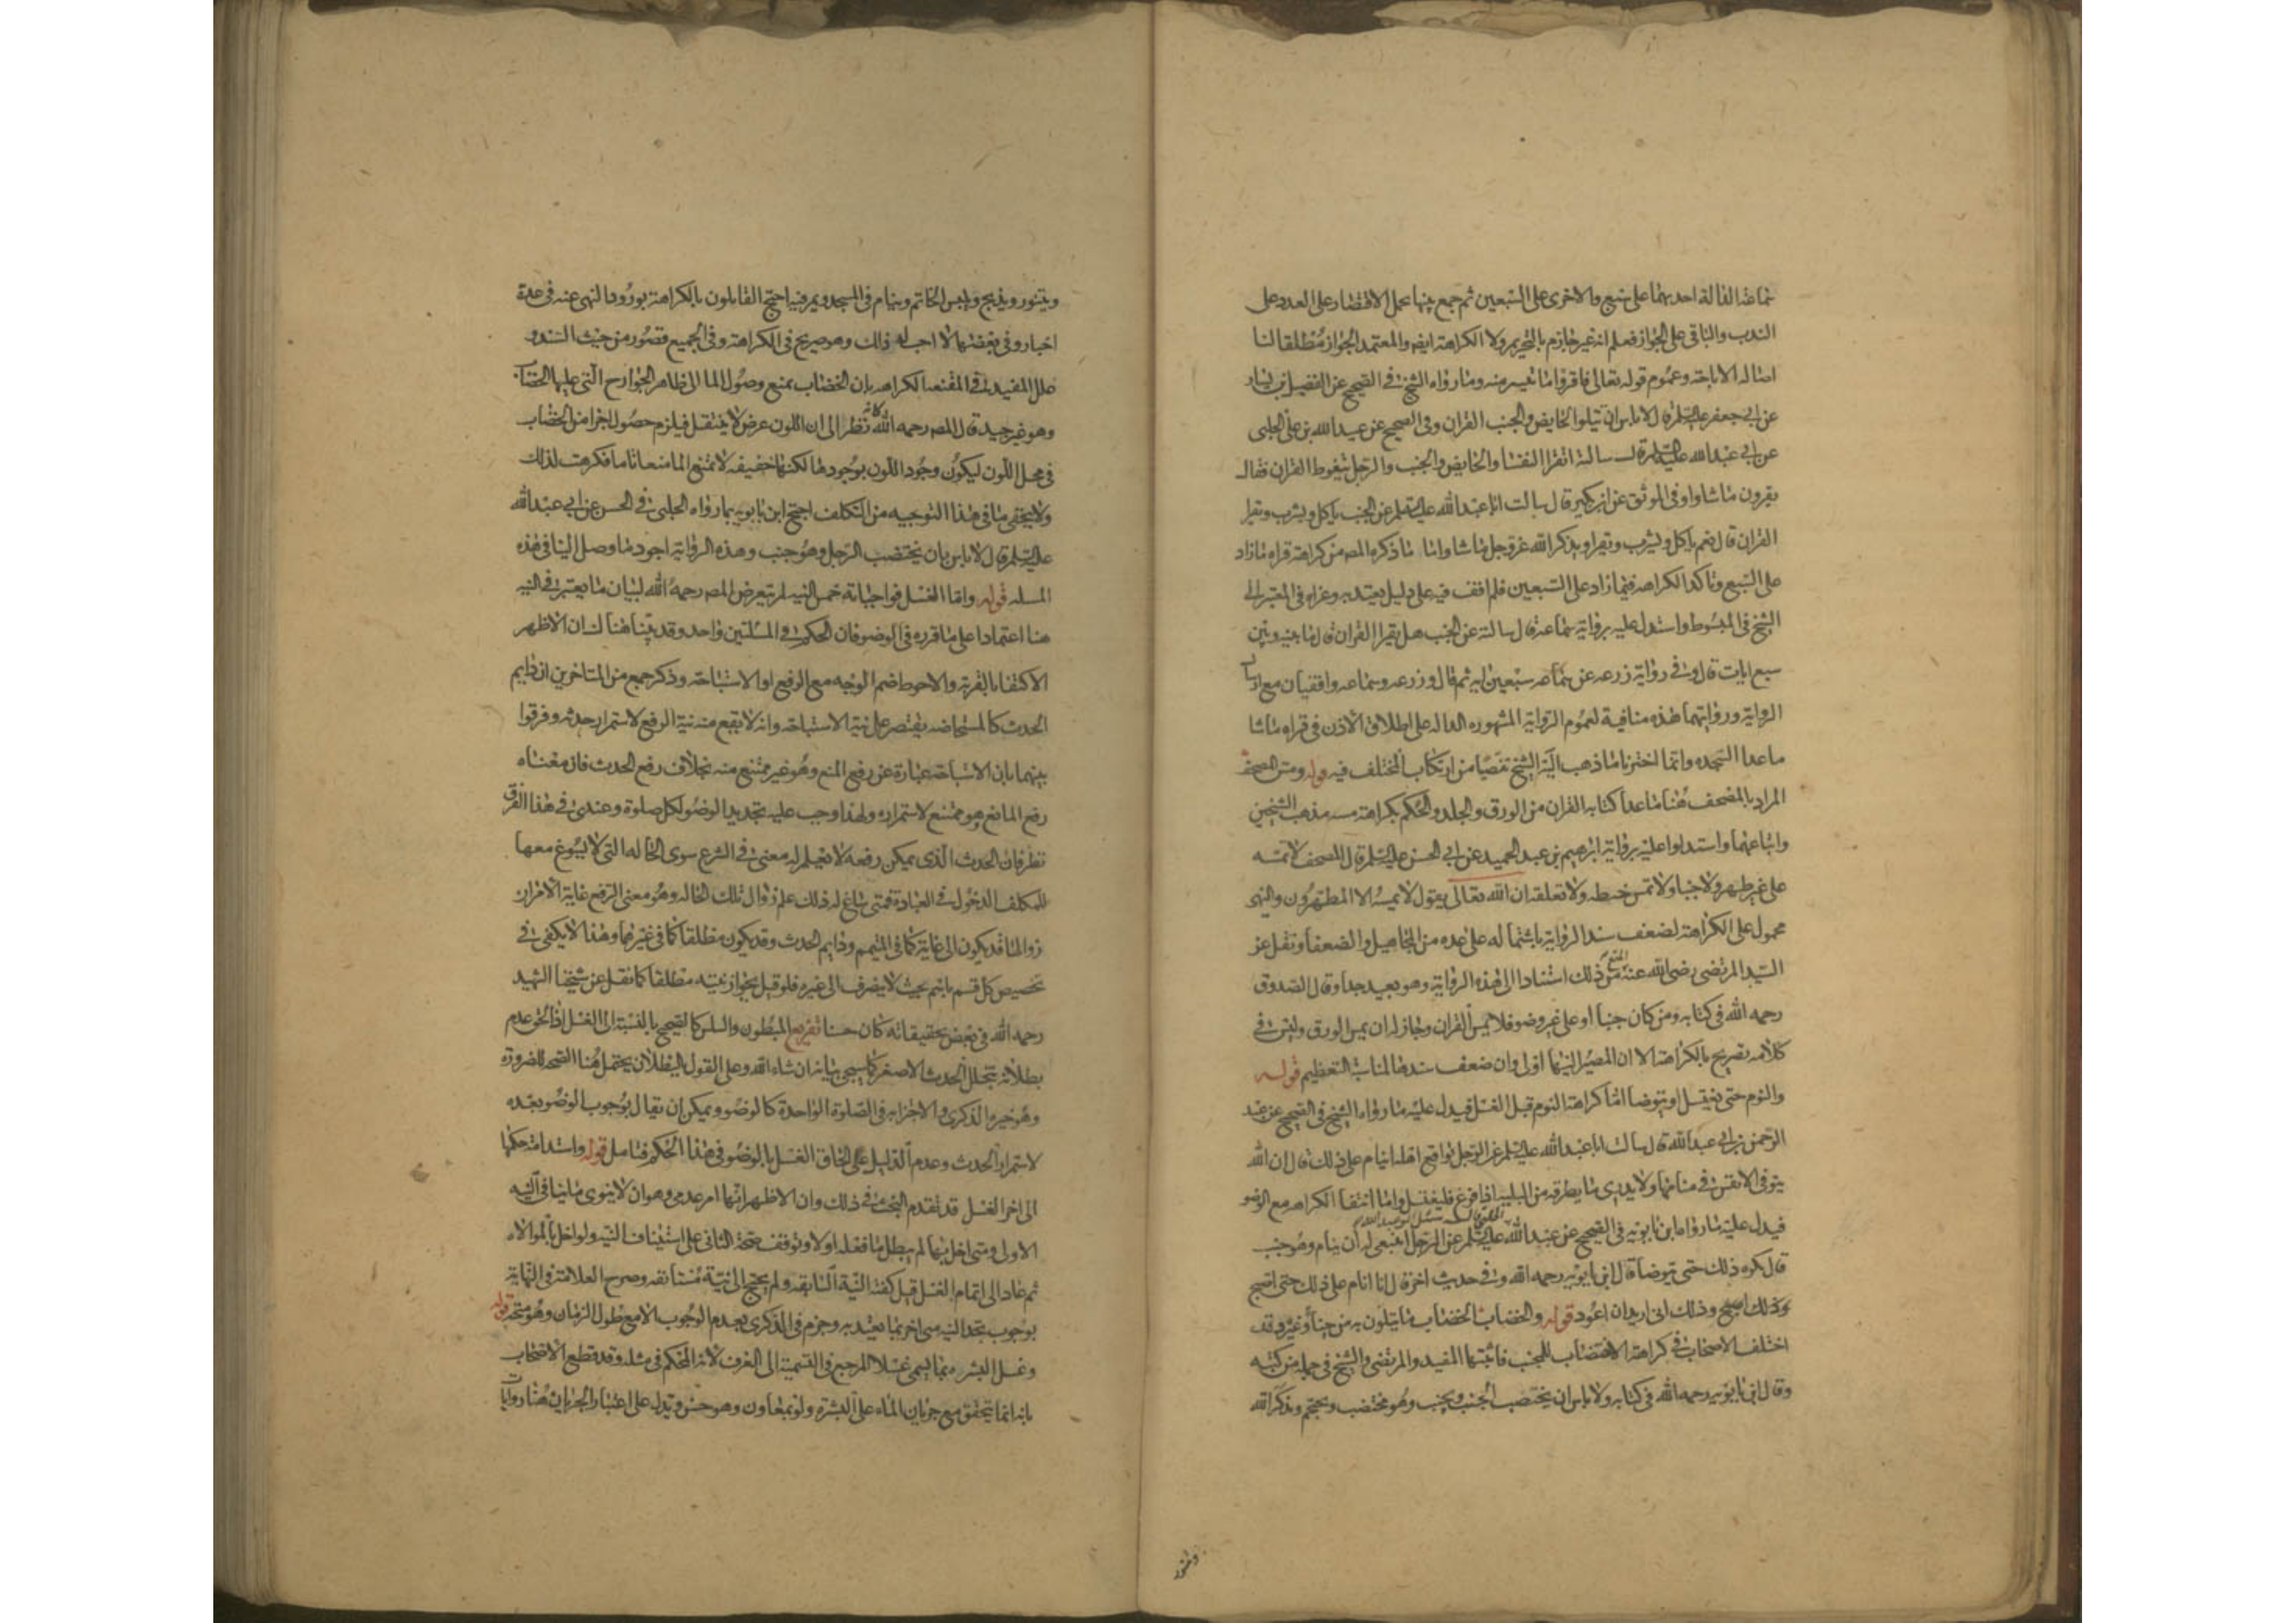 سماعة الدالة احديهما على سبع والاخرى على السبعين ثم جمع بينها بحمل الاقتصار على العدد على
الندب والباقى على الجواز فعلم انه غير جازم بالتحريم ولا الكراهة ايضا والمعتمد الجواز مطلقا لنا
اصالة الاباحة وعموم قوله تعالى فاقرؤا ما تيسر منه وما رواه الشيخ فى الصحيح عن الفضيل بن يسار
عن ابى جعفر عليه السلم قال لا باس ان تتلوا الحايض والجنب القران وفى الصحيح عن عبيد الله بن على الحلبى
عن ابى عبد الله عليه السلم قال سالته اتقرا النفسا والحايض والجنب والرجل يتغوط القران فقال
يقرون ما شاوا وفى الموثق عن ابن بكير قال سالت ابا عبد الله عليه السلم عن الجنب ياكل ويشرب ويقرا
القران قال نعم ياكل ويشرب ويقرا ويذكر الله عز وجل ما شا واما ما ذكره المص من كراهة قراه ما زاد
على السبع وتاكد الكراهه فيما زاد على السبعين فلم اقف فيه على دليل يعتد به وعزاه فى المعتبر الى
الشيخ فى المبسوط واستدل عليه برواية سماعة قال سالته عن الجنب هل يقرا القران قال ما بينه وبين
سبع ايات قال وفى رواية زرعه عن سماعه سبعين ايه ثم قال وزرعه وسماعه واقفيان مع ارسال
الرواية وروايتهما هذه منافية لعموم الرواية المشهوره الداله على اطلاق الاذن فى قراه ما شا
ما عدا السجده وانما اخترنا ما ذهب اليه الشيخ تفصيا من ارتكاب المختلف فيه قوله ومس المصحف
المراد بالمصحف هنا ما عدا كتابه القران من الورق والجلد والحكم بكراهة مسه مذهب الشيخين
واتباعهما واستدلوا عليه برواية ابرهيم بن عبد الحميد عن ابى الحسن عليه السلم قال المصحف لا تمسه
على غير طهر ولا جنبا ولا تمس خيطه ولا تعلقه ان الله تعالى يقول لا يمسه الا المطهرون والنهى
محمول على الكراهة لضعف سند الرواية باشتماله على عده من المجاهيل والضعفا ونقل عن
السيد المرتضى رضى الله عنه المنع من ذلك استنادا الى هذه الرواية وهو بعيد جدا وقال الصدوق
رحمه الله فى كتابه ومن كان جنبا او على غير وضو فلا يمس القران وجاز له ان يمس الورق وليس فى
كلامه تصريح بالكراهة الا ان المصير اليها اولى وان ضعف سندها لمناسبة التعظيم قوله
والنوم حتى يغتسل او يتوضا اما كراهة النوم قبل الغسل فيدل عليه ما رواه الشيخ فى الصحيح عن عبد
الرحمن بن ابى عبد الله قال سالت ابا عبد الله عليه السلم عن الرجل يواقع اهله اينام على ذلك قال ان الله
يتوفى الانفس فى منامها ولا يدرى ما يطرقه من البليه اذا فرغ فليغتسل واما انتفا الكراهه مع الوضو
فيدل عليه ما رواه ابن بابويه فى الصحيح عن عبيد الله الحلبى قال سئل ابو عبد الله عليه السلم عن الرجل اينبغى له ان ينام وهو جنب
قال يكره ذلك حتى يتوضا قال ابن بابويه رحمه الله وفى حديث اخر قال انا انام على ذلك حتى اصبح
وذلك انى اريد ان اعود قوله والخضاب الخضاب ما يتلون به من حناء وغيره وقد
اختلف الاصحاب فى كراهة الاختضاب للجنب فاثبتها المفيد والمرتضى والشيخ فى جمله من كتبه
وقال ابن بابويه رحمه الله فى كتابه ولا باس ان يختضب الجنب ويجنب وهو مختضب ويحتجم ويذكر الله
ويتنور
ويتنور ويذبح ويلبس الخاتم وينام فى المسجد ويمر فيه احتج القايلون بالكراهة بورود النهى عنه فى عدة
اخبار وفى بعضها لا احب له ذلك وهو صريح فى الكراهة وفى الجميع قصور من حيث السند و
علل المفيد فى المقنعه الكراهه بان الخضاب يمنع وصول الما الى ظاهر الجوارح التى عليها الخضاب
وهو غير جيد قال المص رحمه الله كانه نظر الى ان اللون عرض لا ينتقل فيلزم حصول اجزا من الخضاب
فى محل اللون ليكون وجود اللون بوجودها لكنها خفيفه لا تمنع الما منعا تاما فكرهت لذلك
ولا يخفى ما فى هذا التوجيه من التكلف احتج ابن بابويه بما رواه الحلبى فى الحسن عن ابى عبد الله
عليه السلم قال لا باس بان يختضب الرجل وهو جنب وهذه الرواية اجود ما وصل الينا فى هذه
المسله قوله واما الغسل فواجباته خمس النيه لم يتعرض المص رحمه الله لبيان ما يعتبر فى النيه
هنا اعتمادا على ما قرره فى الوضو فان الحكم فى المسئلتين واحد وقد بينا هناك ان الاظهر
الاكتفا بالقربة والاحوط ضم الوجه مع الرفع او الاستباحة وذكر جمع من المتاخرين ان دايم
الحدث كالمستحاضه يقتصر على نية الاستباحه وانه لا يقع منه نية الرفع لاستمرار حدثه وفرقوا
بينهما بان الاستباحة عبارة عن رفع المنع وهو غير ممتنع منه بخلاف رفع الحدث فان معناه
رفع المانع وهو ممتنع لاستمراره ولهذا وجب عليه تجديد الوضو لكل صلوة وعندى فى هذا الفرق
نظر فان الحدث الذى يمكن رفعه لا نعلم له معنى فى الشرع سوى الحاله التى لا يسوغ معها
للمكلف الدخول فى العبادة فمتى ساغ له ذلك علم زوال تلك الحاله وهو معنى الرفع غاية الامر ان
زوالها قد يكون الى غاية كما فى المتيمم ودايم الحدث وقد يكون مطلقا كما فى غيرهما وهذا لا يكفى فى
تخصيص كل قسم باسم بحيث لا ينصرف الى غيره فلو قيل بجواز نيته مطلقا كما نقل عن شيخنا الشهيد
رحمه الله فى بعض تحقيقاته كان حسنا تفريع المبطون والسلس كالصحيح بالنسبة الى الغسل اذ الحق عدم
بطلانه بتخلل الحدث الاصغر كما سيجى بيانه ان شاء الله وعلى القول بالبطلان يحتمل هنا الصحه للضرورة
وهو خيره الذكرى والاجتزا به فى الصلوة الواحدة كالوضو ويمكن ان يقال بوجوب الوضو بعده
لاستمرار الحدث وعدم الدليل على الحاق الغسل بالوضو فى هذا الحكم فتامل قوله واستدامة حكمها
الى اخر الغسل قد تقدم البحث فى ذلك وان الاظهر انها امر عدمى وهو ان لا ينوى ما ينافى النيه
الاولى ومتى اخل بها لم يبطل ما فعله اولا وتوقف صحة الثانى على استيناف النيه ولو اخل بالموالاه
ثم عاد الى اتمام الغسل قيل كفته النية السابقه ولم يحتج الى نية مستانفه وصرح العلامة فى النهاية
بوجوب تجديد النيه متى اخر بما يعتد به وجزم فى الذكرى بعدم الوجوب الا مع طول الزمان وهو متجه قوله
وغسل البشره بما يسمى غسلا المرجع فى التسمية الى العرف لانه المحكم فى مثله وقد قطع الاصحاب
بانه انما يتحقق مع جريان الماء على البشرة ولو بمعاون وهو حسن ويدل على اعتبار الجريان هنا روايات